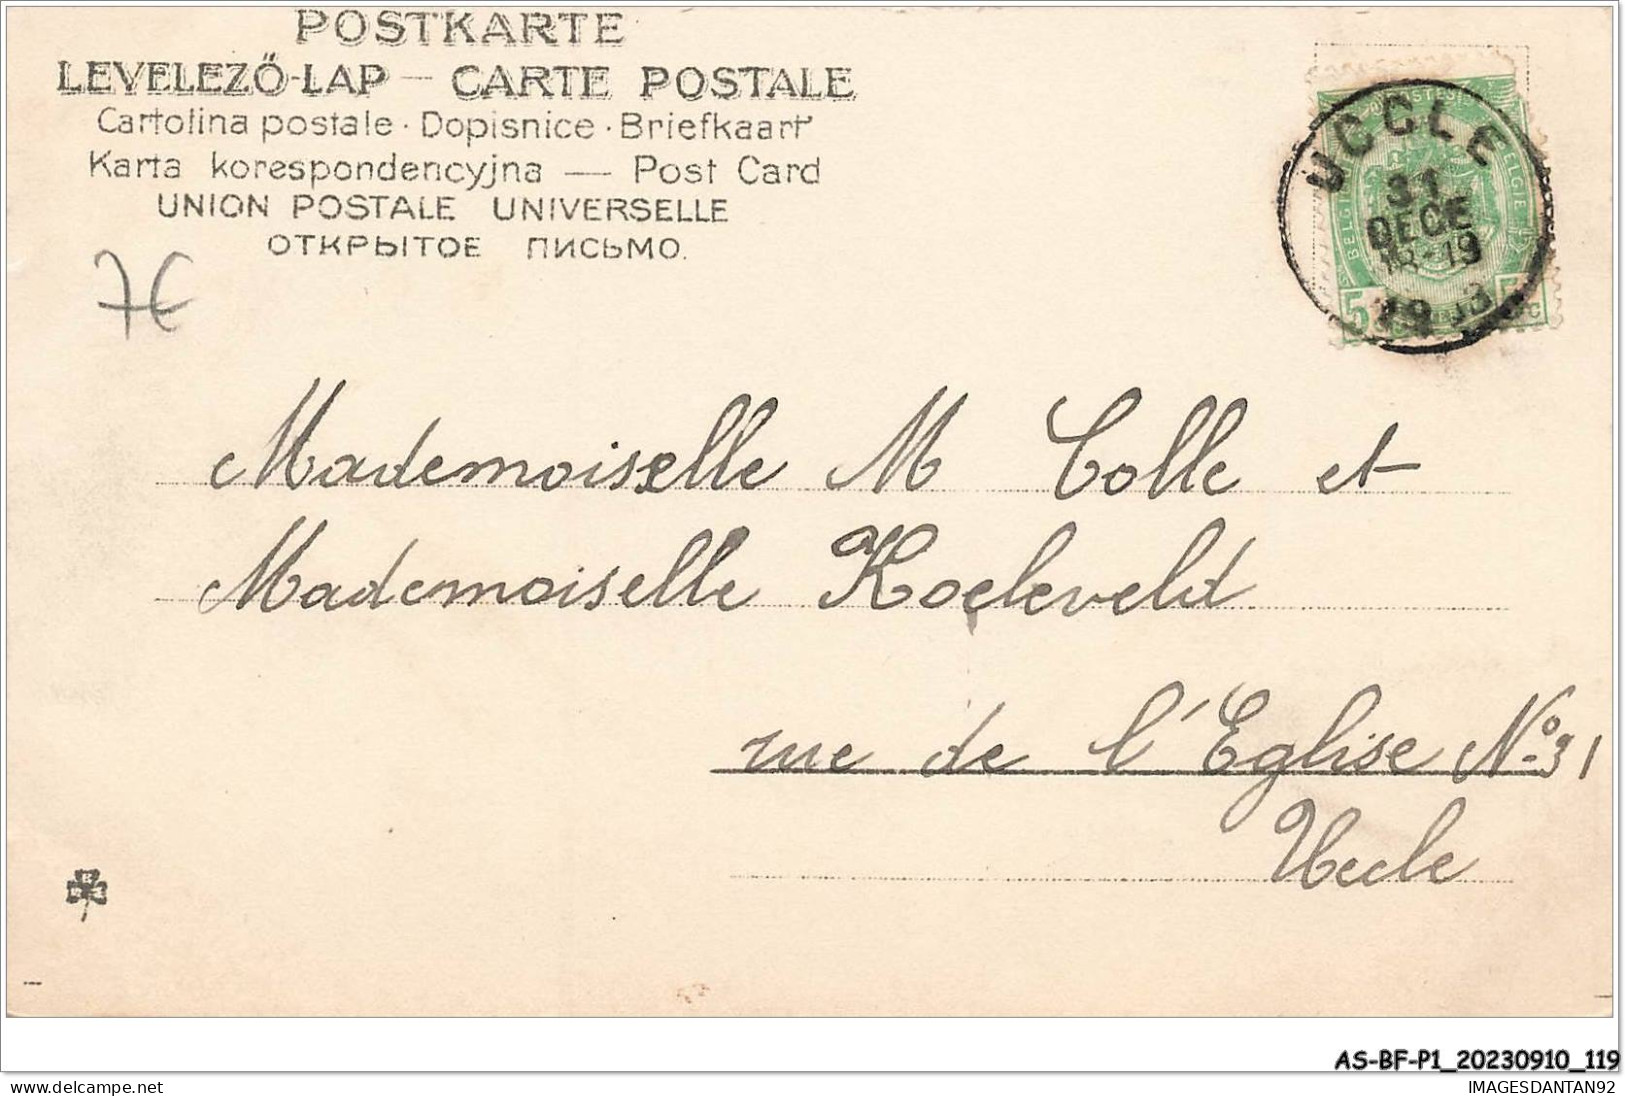 POSTKARTE
LEVELEZŐ-LAP — CARTE POSTALE
Cartolina postale · Dopisnice · Briefkaart
Karta korespondencyjna — Post Card
UNION POSTALE UNIVERSELLE
ОТКРЫТОЕ ПИСЬМО.
7€
UCCLE
31
DECE
18-19
5
Mademoiselle M Colle et
Mademoiselle Koeleveld
rue de l'Eglise No 31
Uccle
AS-BF-P1_20230910_119
delcampe.net
IMAGESDANTAN92